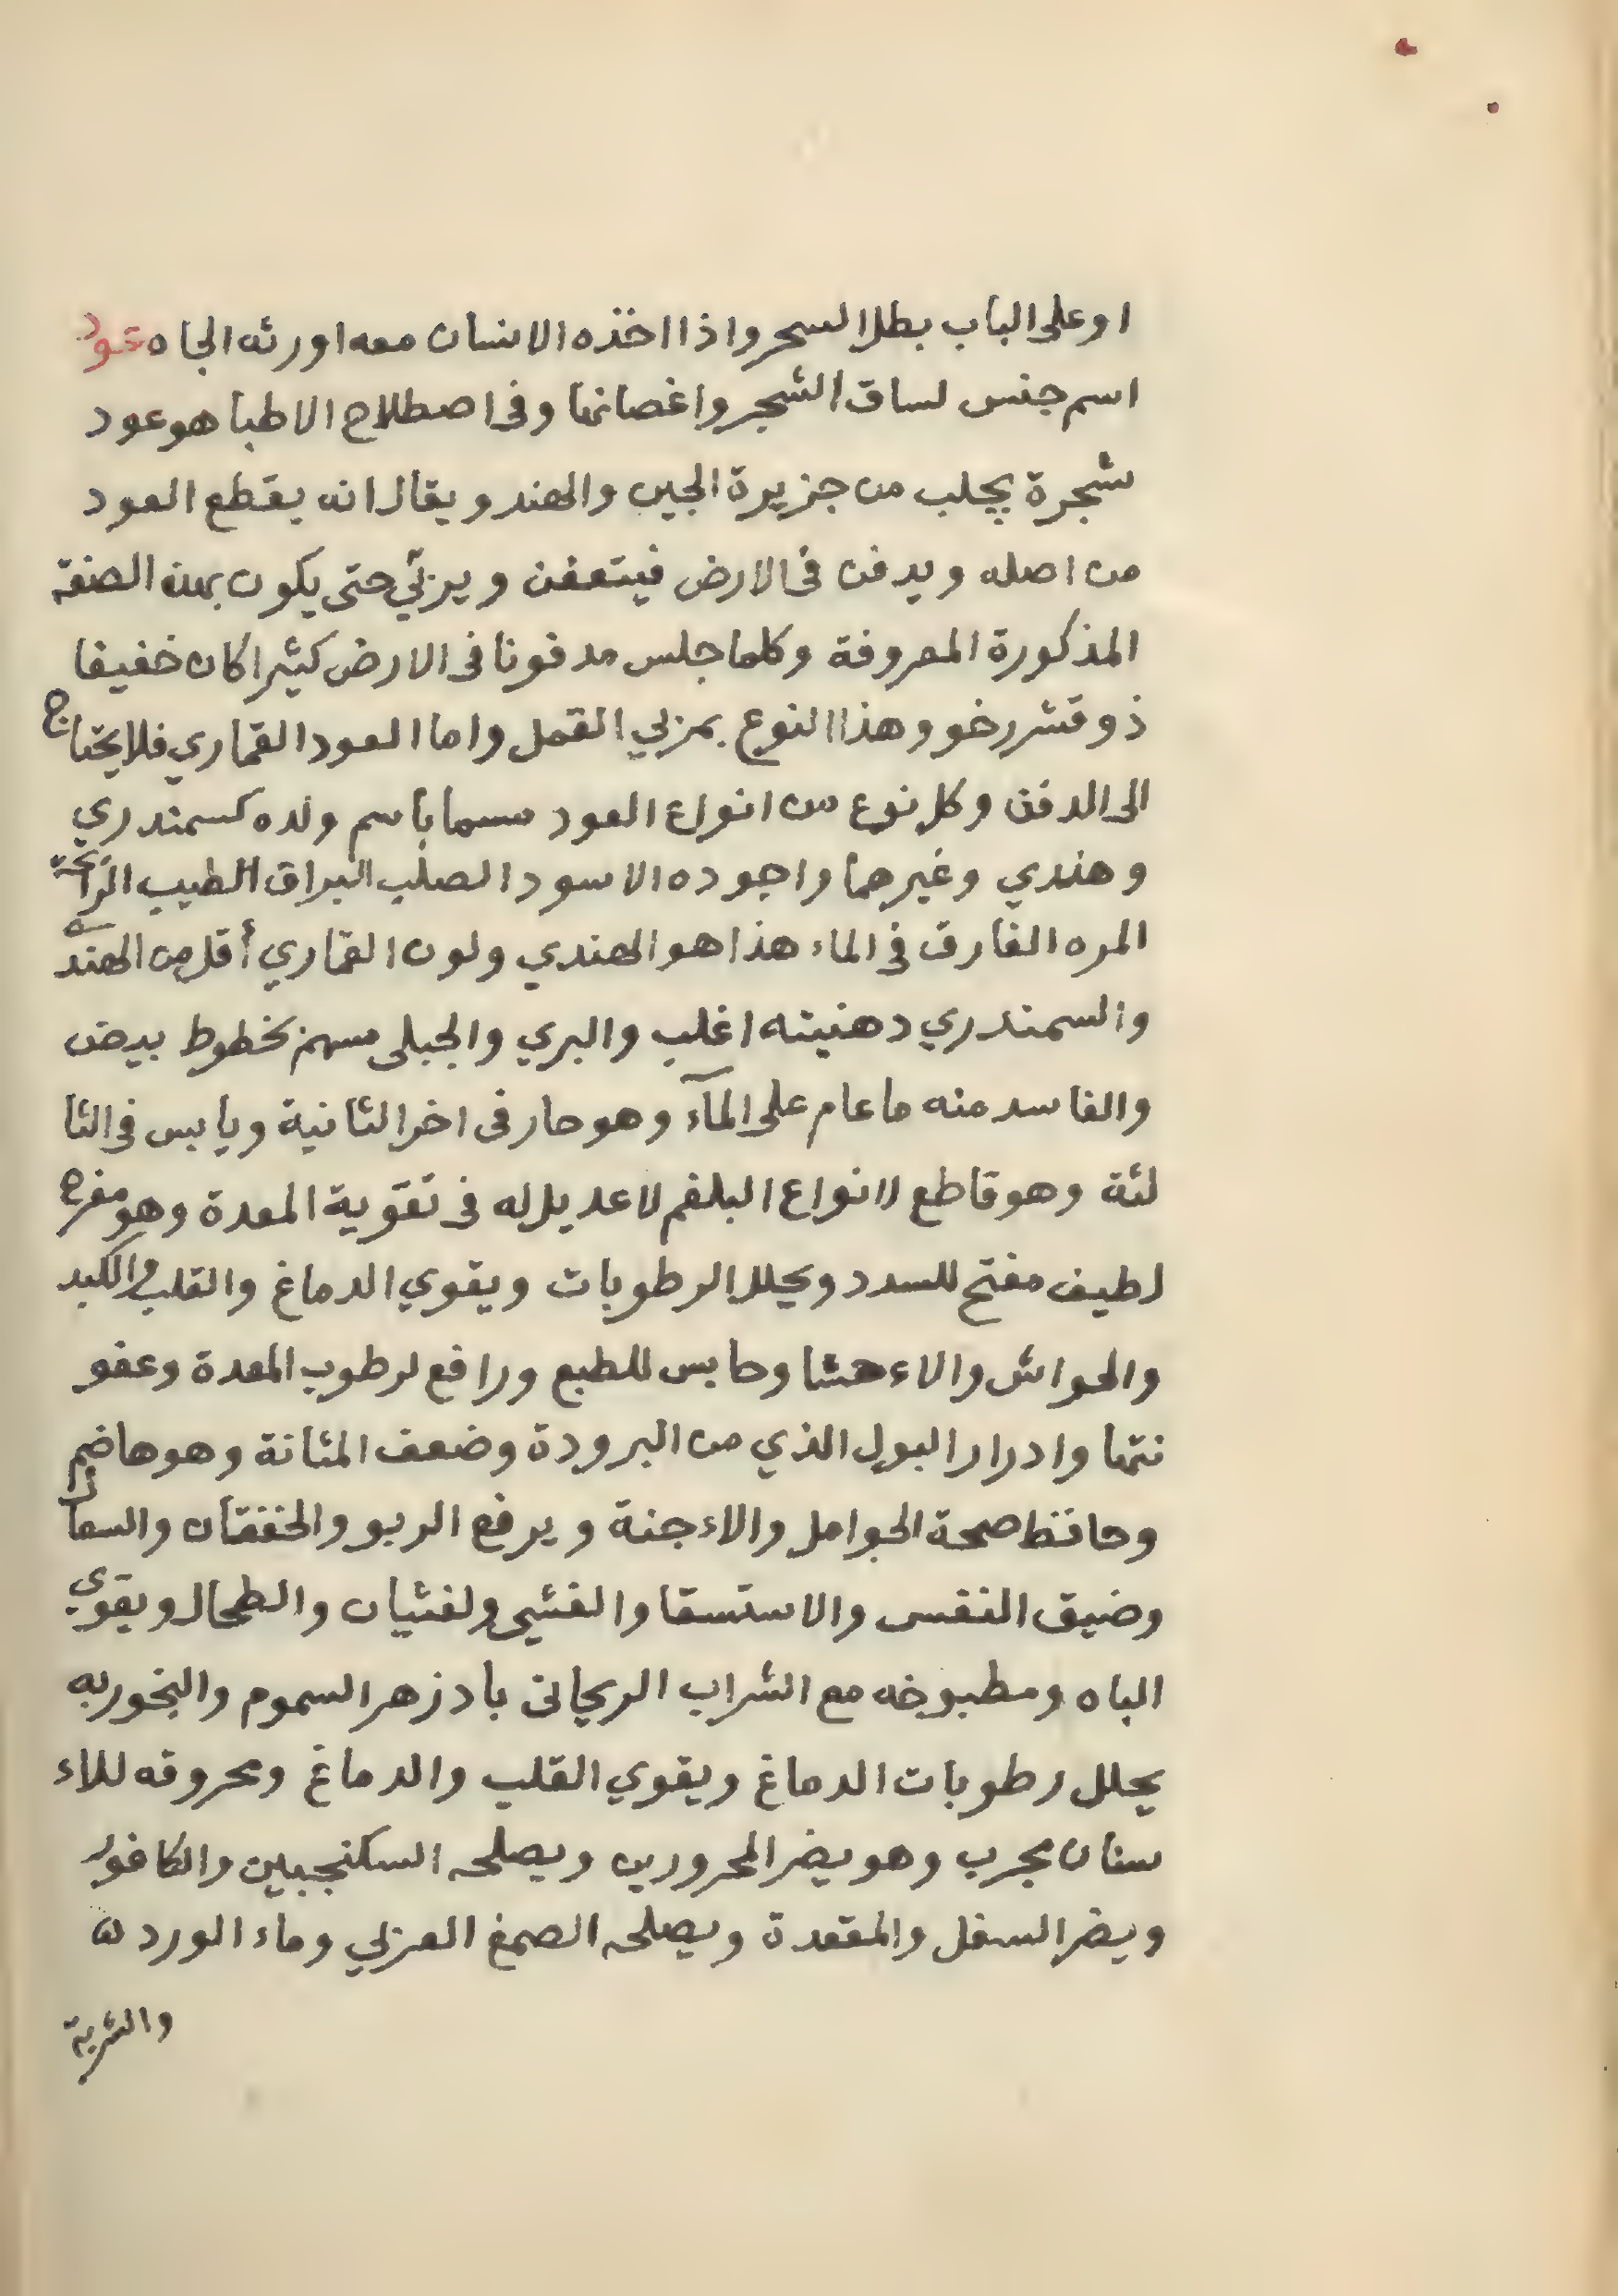 او على الباب بطل السحر واذا اخذه الانسان معه اورثه الجاه عود
اسم جنس لساق الشجر واغصانها وفى اصطلاح الاطبا هو عود
شجرة يجلب من جزيرة الجين والهند ويقال انه يقطع العود
من اصله ويدفن فى الارض فيتعفن ويربّي حتى يكون بهذه الصفة
المذكورة المعروفة وكلما جلس مدفونا فى الارض كثيرا كان خفيفا
ذو قشر رخو وهذا النوع يربي القمل واما العود القماري فلا يحتاج
الى الدفن وكل نوع من انواع العود مسما باسم ولده كسمندري
وهندي وغيرهما واجوده الاسود الصلب البراق الطيب الرائحة
المره الغارق فى الماء هذا هو الهندي ولون القماري أقل من الهندي
والسمندري دهنيته اغلب والبري والجبلى منهم بخطوط بيض
والفاسد منه ما عام على المآء وهو حار فى اخر الثانية ويابس فى الثا
لثة وهو قاطع لانواع البلغم لا عديل له فى تقوية المعدة وهو مفرح
لطيف مفتح للسدد ويحلل الرطوبات ويقوي الدماغ والقلب والكبد
والحواش والاءحشا وحابس للطبع ورافع لرطوب المعدة وعفو
نتها وادرار البول الذي من البرودة وضعف المثانة وهو هاضم
وحافظ صحة الحوامل والاءجنة ويرفع الربو والخفقان والسعال
وضيق النفس والاستسقا والغثي ولغثيان والطحال ويقوي
الباه ومطبوخه مع الشراب الريحانى بادزهر السموم والبخور به
يحلل رطوبات الدماغ ويقوي القلب والدماغ ومحروقه للاء
سنان مجرب وهو يضر المحرورين ويصلحه السكنجبين والكافور
ويضر السفل والمقعدة ويصلحه الصمغ العربي وماء الورد
والشربة